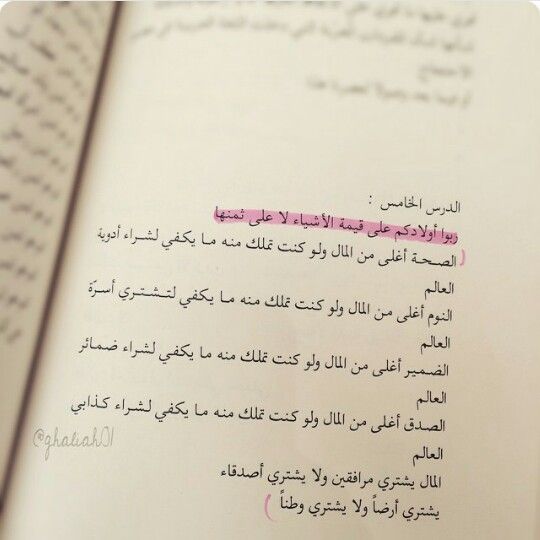 الدرس الخامس :
ربوا أولادكم على قيمة الأشياء لا على ثمنها
( الصحة أغلى من المال ولو كنت تملك منه ما يكفي لشراء أدوية
العالم
النوم أغلى من المال ولو كنت تملك منه ما يكفي لتشتري أسرّة
العالم
الضمير أغلى من المال ولو كنت تملك منه ما يكفي لشراء ضمائر
العالم
الصدق أغلى من المال ولو كنت تملك منه ما يكفي لشراء كذابي
العالم
المال يشتري مرافقين ولا يشتري أصدقاء
يشتري أرضاً ولا يشتري وطناً )
@ghaliah01